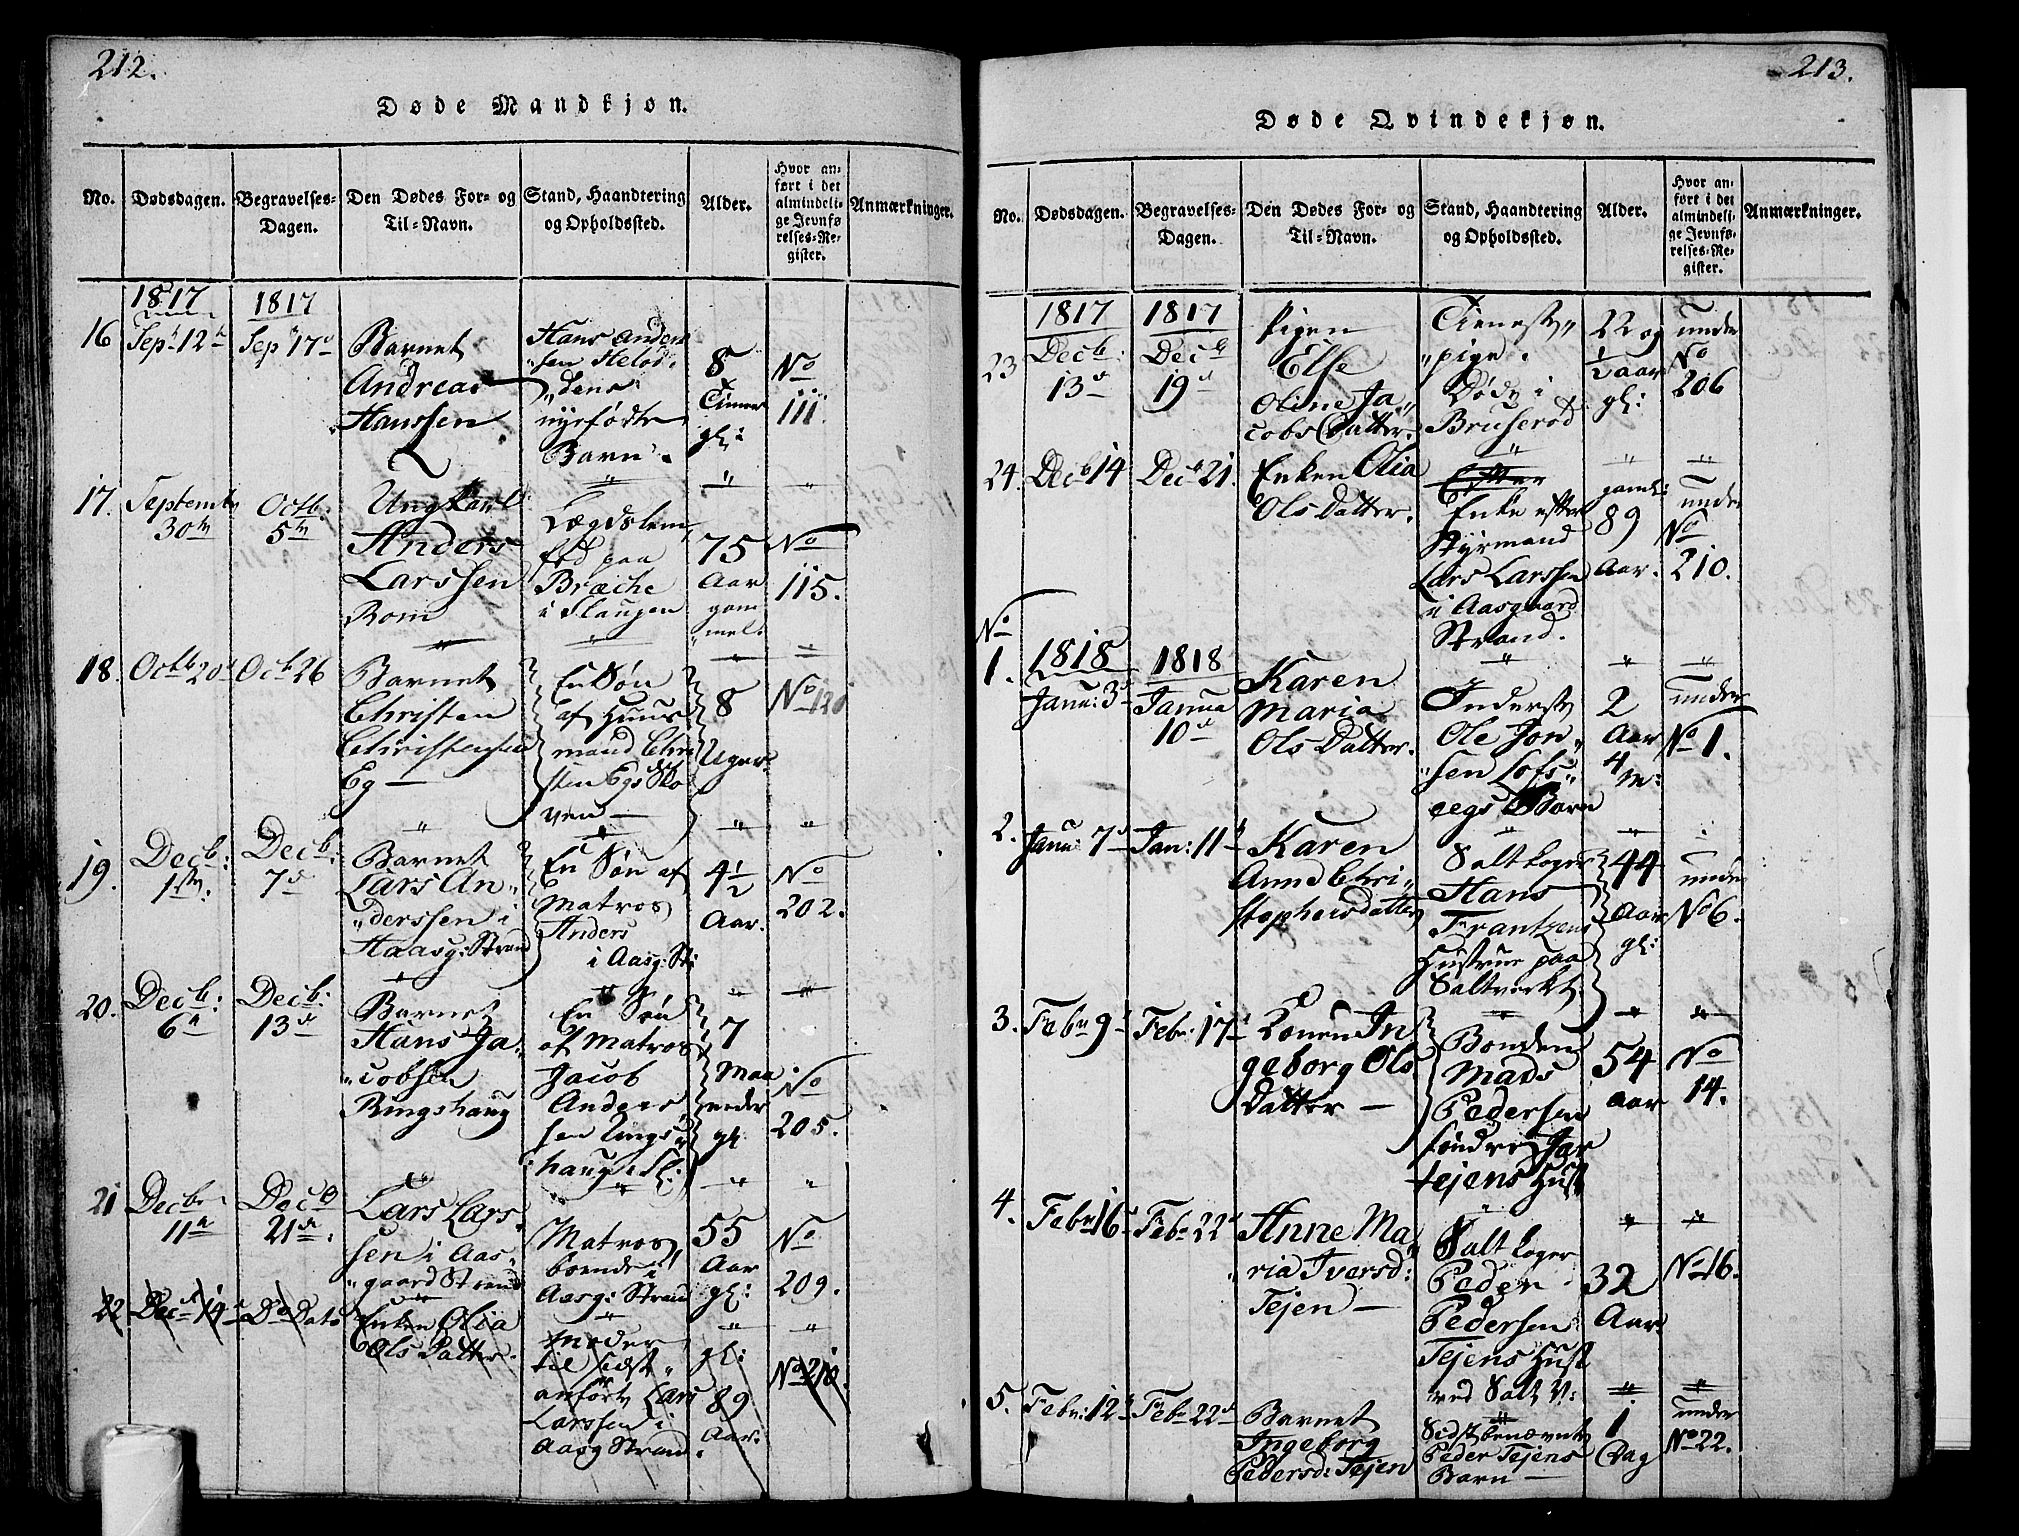 212.
Døde Mandkjøn.
No. Dødsdagen. Begravelses-Dagen. Den Dødes For- og Til-Navn. Stand, Haandtering og Opholdssted. Alder. Hvor anført i det almindelige Jevnførelses-Register. Anmærkninger.
1817 1817
16 Sepb 12te Sepb 17d
Barnet
Andreas
Hanssen
Hans Anders
nyefødte
Barn.
8
Timer
gl:
No
111.
17. Septembr
30te
Octb:
5te
Ungkarl
Anders
Larssen
Rom
Lægdslem
paa
Bræche
i Slaugen
75
Aar
gam
mel.
No
115.
18. Octb 20d Octb 26
Barnet
Christen
Christensen
Eg —
En Søn
af Huus
mand Chri
sten Egs Sko
ven —
8
Uger.
No 121
19. Decb:
1ste.
Decb:
7d
Barnet
Lars An„
„derssen i
Haasg: Strand
En Søn af
Matros
Anders
i Aasg: St:
4½
Aar.
No
202.
20. Decb:
6te
Decb:
13d
Barnet
Hans Ja„
„cobsen
Ringshaug
En Søn
af Matros
Jacob
Anders
sen Rings„
haug i Sl.
7
Maa
neder
gl.
No
205.
21 Decbr
11te
Decb
21de.
Lars Lars„
sen i Aas„
„gaard Strand
Matros
boende i
Aasg: Strand
55
Aar
gl:
No
209.
22 Decb 14 Do Dato
Enken Olia
Ols Datter.
Moder
til sidst
anførte Lars
Larssen i
Aasg Strand
gl:
89
Aar.
No 210.
213.
Døde Qvindekjøn.
No. Dødsdagen. Begravelses-Dagen. Den Dødes For- og Til-Navn. Stand, Haandtering og Opholdssted. Alder. Hvor anført i det almindelige Jevnførelses-Register. Anmærkninger.
1817 1817
23 Decb:
13d
Decb
19d
Pigen
Else
Oline Ja„
cobs Datter.
Tieneste„
„pige.
Døde i
Bruserød
22 og
½ aar
gl:
under
No
206
24. Decb 14 Decb 21.
Enken Olia
Ols Datter.
Enke efter
Styrmand
Lars Larssen
i Aasgaard
Strand.
gaml:
89
Aar.
under
No
210.
No
1. 1818 1818
Janu: 3d Janua
10d
Karen
Maria
Ols Datter.
Inderst
Ole Jon„
„sen Lofs„
eegs Barn
2
Aar
4
M:
under
No 1.
2. Janu 7d Jan: 11te
Karen
Anne Chri„
stophersdatter
Saltkoger
Hans
Frantzens
Hustrue paa
Saltverket.
44
Aar
gl:
under
No 6.
3. Febr 9d Febr: 17d
Konen In
geborg Ols
Datter —
Bonden
Mads
Pedersen
søndre Jar
tejens Hust
54
aar
No
14.
4. Febr 16d Febr 22d
Anne Ma„
ria Iversd:
Tejen —
Saltkoger
Peder
Pedersen
Tejens Hust
ved Salt V:
32
Aar
No 16.
5. Febr: 12d Febr 22d
Barnet
Ingeborg
Pedersd: Tejen
Sidstbenævnte
Peder Tejens
Barn —
1
Dag
under
No 22.